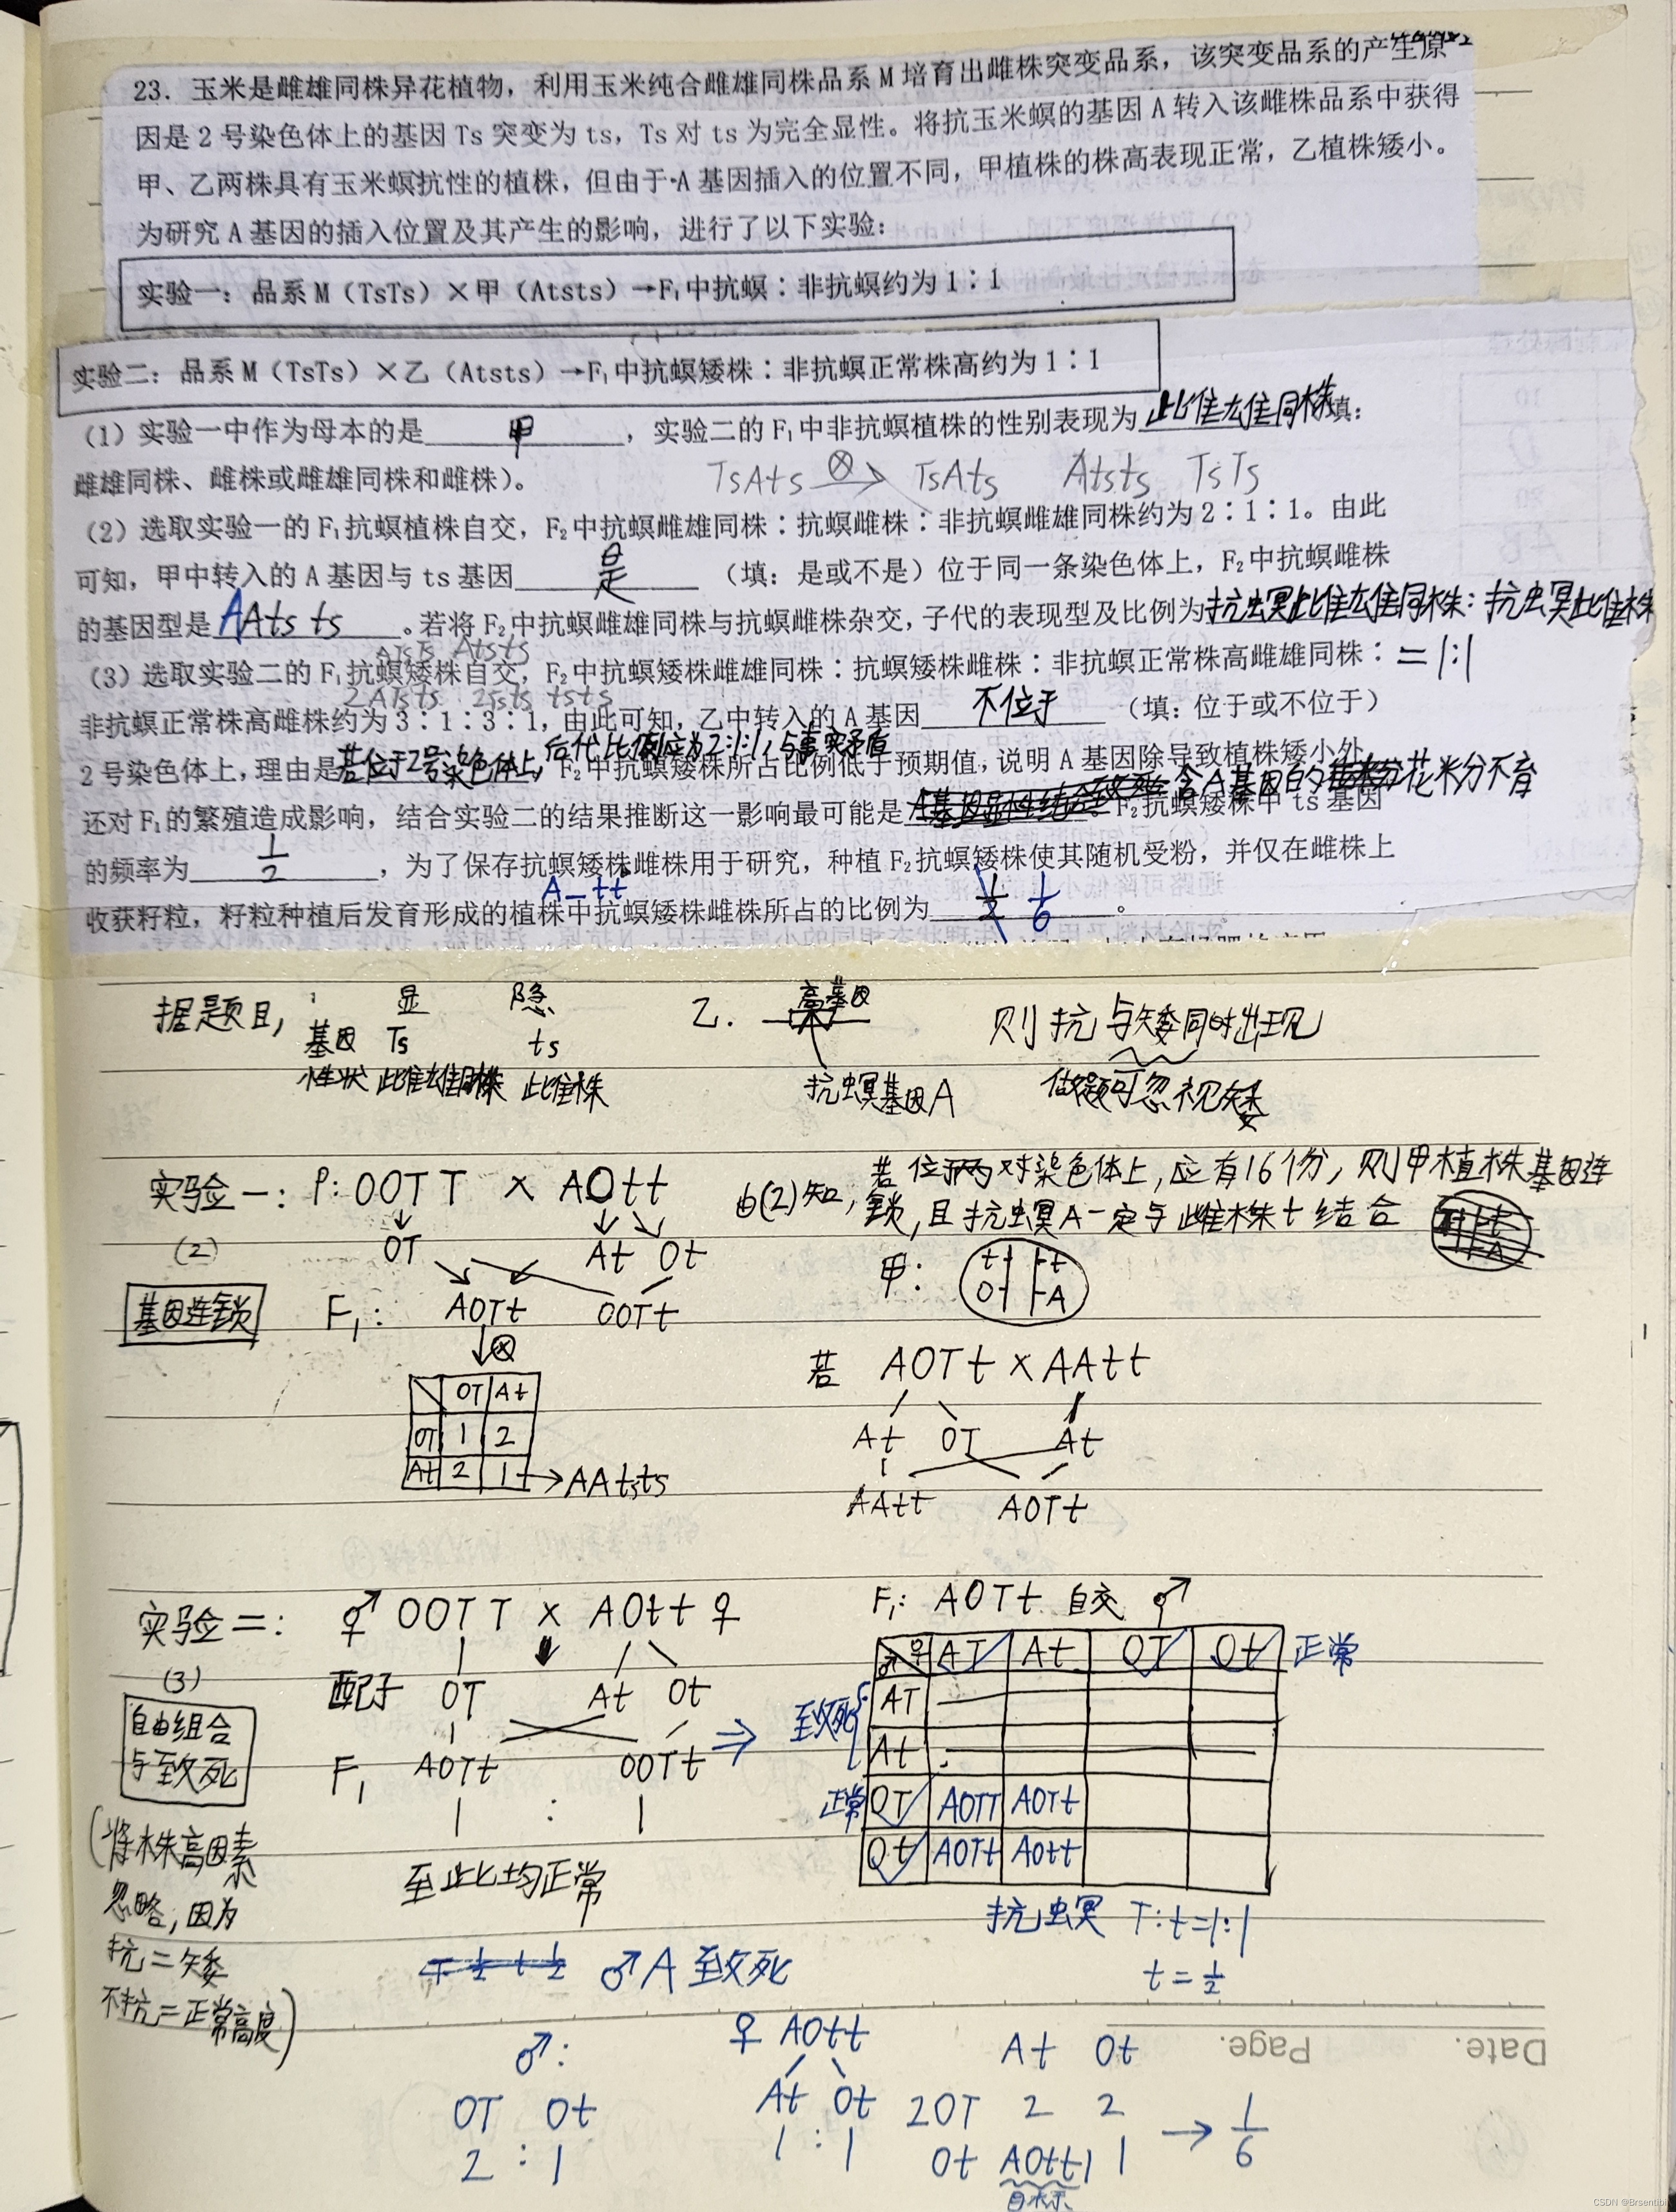 23．玉米是雌雄同株异花植物，利用玉米纯合雌雄同株品系 M 培育出雌株突变品系，该突变品系的产生原
因是 2 号染色体上的基因 Ts 突变为 ts，Ts 对 ts 为完全显性。将抗玉米螟的基因 A 转入该雌株品系中获得
甲、乙两株具有玉米螟抗性的植株，但由于 A 基因插入的位置不同，甲植株的株高表现正常，乙植株矮小。
为研究 A 基因的插入位置及其产生的影响，进行了以下实验：
实验一：品系 M（TsTs）×甲（Atsts）→F₁中抗螟∶非抗螟约为 1∶1
实验二：品系 M（TsTs）×乙（Atsts）→F₁中抗螟矮株∶非抗螟正常株高约为 1∶1
（1）实验一中作为母本的是 甲 ，实验二的 F₁中非抗螟植株的性别表现为 雌雄同株 填：
雌雄同株、雌株或雌雄同株和雌株）。
TsAts ⊗→ TsAts Atsts TsTs
（2）选取实验一的 F₁抗螟植株自交，F₂中抗螟雌雄同株∶抗螟雌株∶非抗螟雌雄同株约为 2∶1∶1。由此
可知，甲中转入的 A 基因与 ts 基因 是 （填：是或不是）位于同一条染色体上，F₂中抗螟雌株
的基因型是 AAtsts 。若将 F₂中抗螟雌雄同株与抗螟雌株杂交，子代的表现型及比例为 抗螟雌雄同株：抗螟雌株
=1:1
（3）选取实验二的 F₁抗螟矮株自交，F₂中抗螟矮株雌雄同株∶抗螟矮株雌株∶非抗螟正常株高雌雄同株∶
非抗螟正常株高雌株约为 3∶1∶3∶1，由此可知，乙中转入的 A 基因 不位于 （填：位于或不位于）
2 号染色体上，理由是 若位于2号染色体上，后代比例应为2:1:1，与事实矛盾
F₂中抗螟矮株所占比例低于预期值，说明 A 基因除导致植株矮小外，
还对 F₁的繁殖造成影响，结合实验二的结果推断这一影响最可能是 含A基因的花粉不育
。F₂抗螟矮株中 ts 基因
的频率为 1/2 ，为了保存抗螟矮株雌株用于研究，种植 F₂抗螟矮株使其随机受粉，并仅在雌株上
A_tt
收获籽粒，籽粒种植后发育形成的植株中抗螟矮株雌株所占的比例为 1/6 。
据题目，
显 隐
基因 Ts ts
性状 雌雄同株 雌株
乙. 高基因
抗螟基因A
则抗与矮同时出现
做题可忽视矮
实验一：P: OOTT × AOtt
(2)
OT At Ot
基因连锁
F₁: AOTt OOTt
⊗
OT At
OT 1 2
At 2 1 → AAtsts
由(2)知，若位于两对染色体上，应有16份，则甲植株基因连
锁，且抗螟A一定与雌株t结合
甲： t t
O A
若 AOTt × AAtt
At OT At
AAtt AOTt
实验二： ♂ OOTT × AOtt ♀
(3)
配子 OT At Ot
自由组合
与致死
F₁ AOTt OOTt
1 : 1
至此均正常
（将株高因素
忽略，因为
抗=矮
不抗=正常高度）
F₁: AOTt 自交
♂ ♀ AT At OT Ot 正常
致死 AT
At
正常 OT AOTT AOTt
Ot AOTt AOtt
抗螟 T:t=1:1
t=1/2
♂A致死
♂:
OT Ot
2 : 1
♀ AOtt
At Ot
1 : 1
At Ot
2OT 2 2
Ot AOtt1 1
→ 1/6
自求
Date. Page.
CSDN @Brsentibi